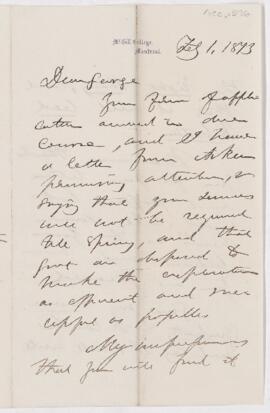 McGill College,
Montreal.
Feb 1, 1873
Dear George
Your form of appli
cation arrived in due
course, and I have
a letter from
promising attention, &
saying that your services
will not be required
till Spring, and that
Govt are disposed to
make the exploration
as efficient and
as possible
My impression is
that you will find it